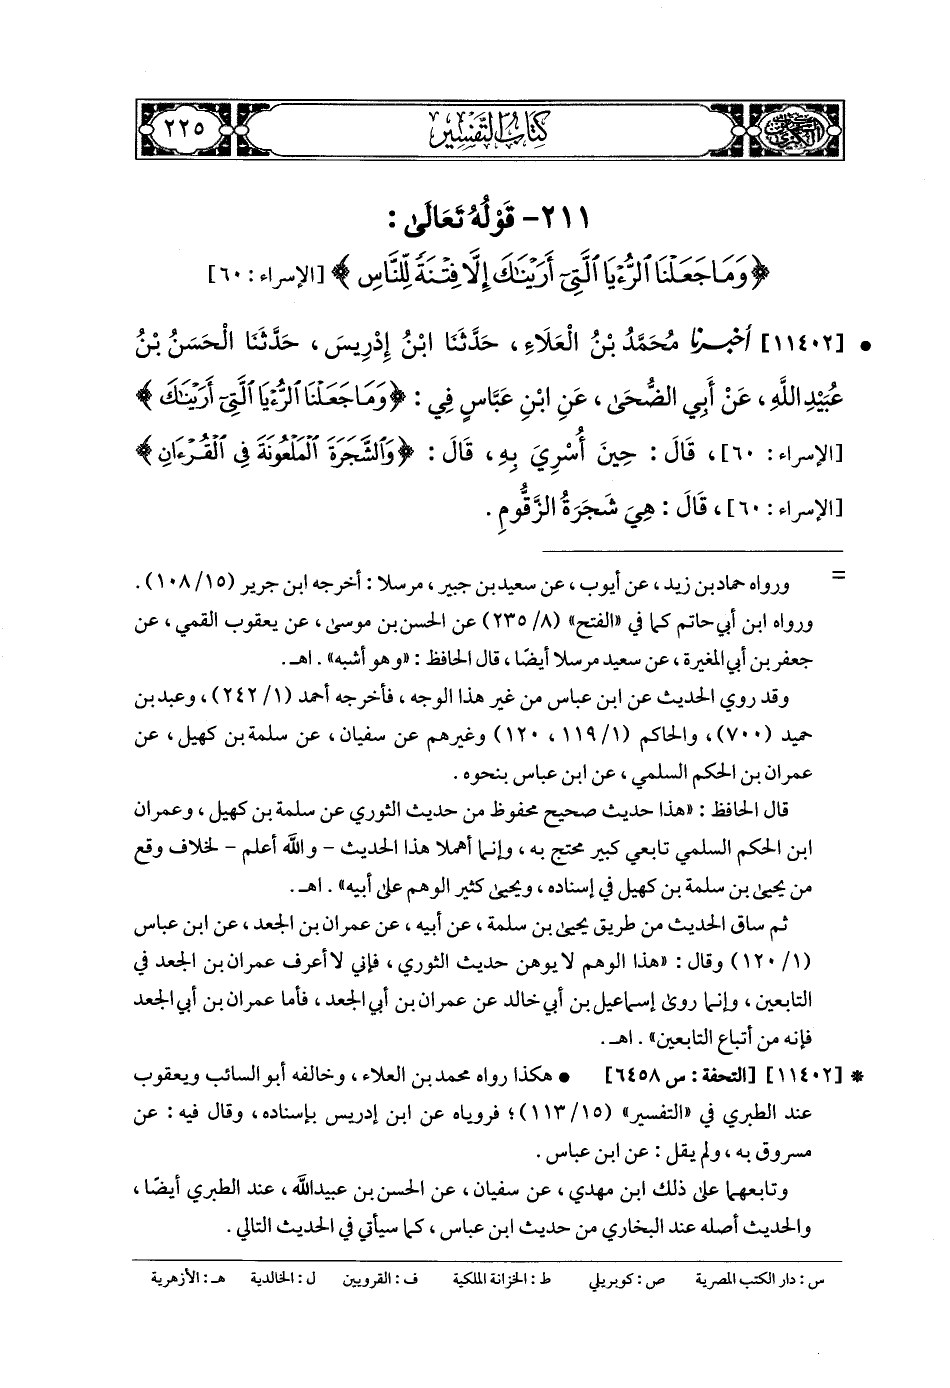 كتاب التفسير
٢٢٥
٢١١- قَوْلُهُ تَعَالَىٰ :
﴿ وَمَا جَعَلْنَا ٱلرُّءْيَا ٱلَّتِىٓ أَرَيْنَٰكَ إِلَّا فِتْنَةً لِّلنَّاسِ ﴾ [الإسراء : ٦٠]
• [١١٤٠٢] أخبرنا مُحَمَّدُ بْنُ الْعَلَاءِ ، حَدَّثَنَا ابْنُ إِدْرِيسَ ، حَدَّثَنَا الْحَسَنُ بْنُ
عُبَيْدِ اللَّهِ ، عَنْ أَبِي الضُّحَىٰ ، عَنِ ابْنِ عَبَّاسٍ فِي : ﴿ وَمَا جَعَلْنَا ٱلرُّءْيَا ٱلَّتِىٓ أَرَيْنَٰكَ ﴾
[الإسراء : ٦٠] ، قَالَ : حِينَ أُسْرِيَ بِهِ ، قَالَ : ﴿ وَٱلشَّجَرَةَ ٱلْمَلْعُونَةَ فِى ٱلْقُرْءَانِ ﴾
[الإسراء : ٦٠] ، قَالَ : هِيَ شَجَرَةُ الزَّقُّومِ .
= ورواه حماد بن زيد ، عن أيوب ، عن سعيد بن جبير ، مرسلا : أخرجه ابن جرير (١٥/ ١٠٨) .
ورواه ابن أبي حاتم كما في «الفتح» (٨/ ٢٣٥) عن الحسن بن موسىٰ ، عن يعقوب القمي ، عن
جعفر بن أبي المغيرة ، عن سعيد مرسلا أيضًا ، قال الحافظ : «وهو أشبه» . اهـ.
وقد روي الحديث عن ابن عباس من غير هذا الوجه ، فأخرجه أحمد (١/ ٢٤٢) ، وعبد بن
حميد (٧٠٠) ، والحاكم (١/ ١١٩ ، ١٢٠) وغيرهم عن سفيان ، عن سلمة بن كهيل ، عن
عمران بن الحكم السلمي ، عن ابن عباس بنحوه .
قال الحافظ : «هذا حديث صحيح محفوظ من حديث الثوري عن سلمة بن كهيل ، وعمران
ابن الحكم السلمي تابعي كبير محتج به ، وإنما أهملا هذا الحديث - والله أعلم - لخلاف وقع
من يحيىٰ بن سلمة بن كهيل في إسناده ، ويحيىٰ كثير الوهم علىٰ أبيه» . اهـ.
ثم ساق الحديث من طريق يحيىٰ بن سلمة ، عن أبيه ، عن عمران بن الجعد ، عن ابن عباس
(١/ ١٢٠) وقال : «هذا الوهم لا يوهن حديث الثوري ، فإني لا أعرف عمران بن الجعد في
التابعين ، وإنما روىٰ إسماعيل بن أبي خالد عن عمران بن أبي الجعد ، فأما عمران بن أبي الجعد
فإنه من أتباع التابعين» . اهـ.
* [١١٤٠٢] [التحفة : س ٦٤٥٨] • هكذا رواه محمد بن العلاء ، وخالفه أبو السائب ويعقوب
عند الطبري في «التفسير» (١٥/ ١١٣) ؛ فروياه عن ابن إدريس بإسناده ، وقال فيه : عن
مسروق به ، ولم يقل : عن ابن عباس .
وتابعهما علىٰ ذلك ابن مهدي ، عن سفيان ، عن الحسن بن عبيدالله ، عند الطبري أيضًا ،
والحديث أصله عند البخاري من حديث ابن عباس ، كما سيأتي في الحديث التالي .
س : دار الكتب المصرية ص : كوبريلي ط : الخزانة الملكية ف : القرويين ل : الخالدية هـ : الأزهرية